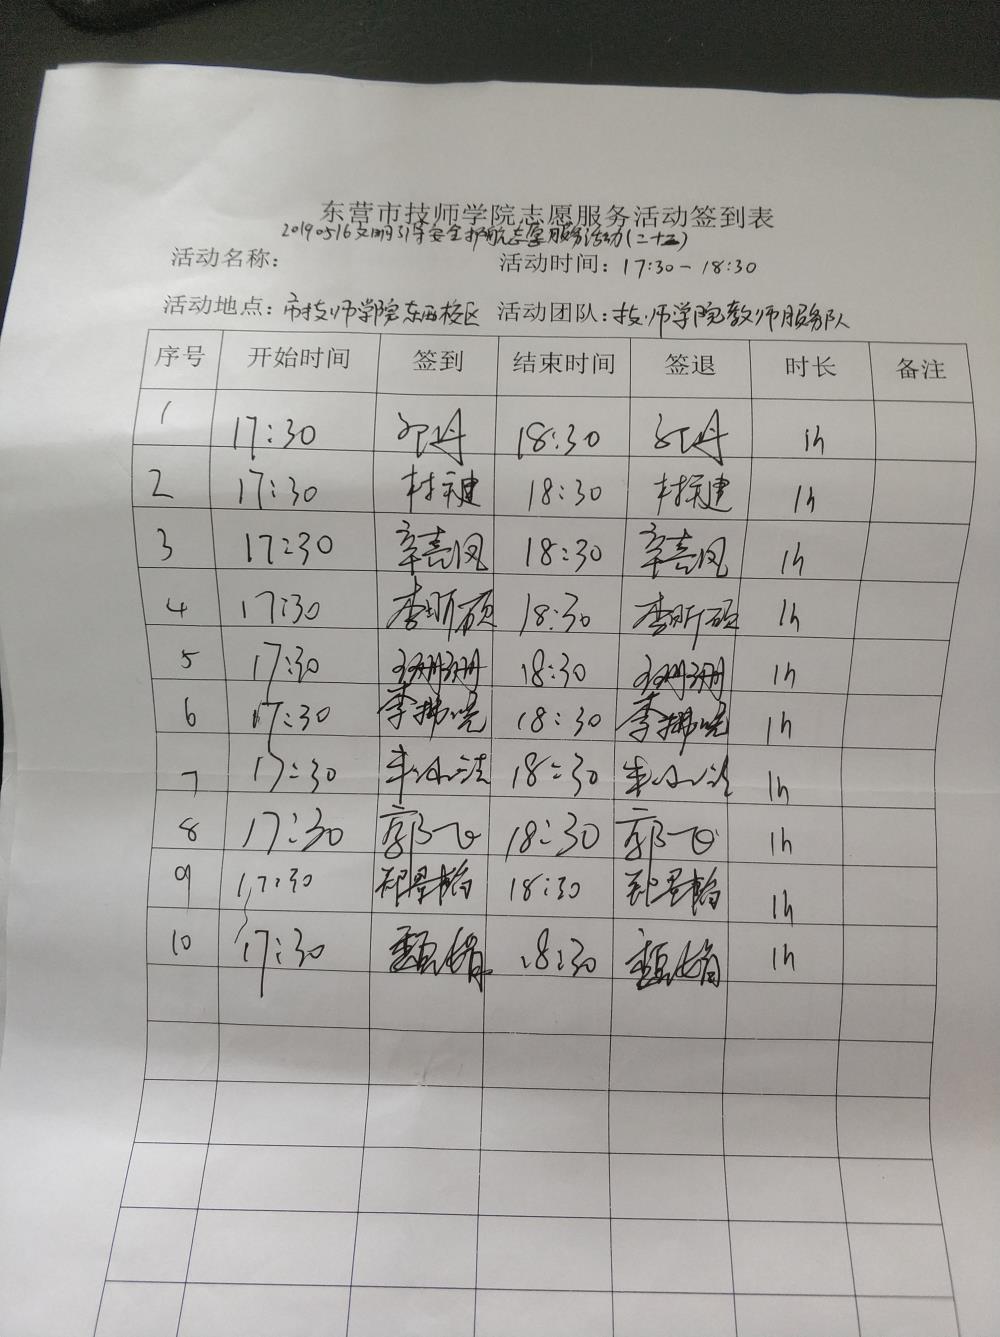 东营市技师学院志愿服务活动签到表
20190516文明引导安全护航志愿服务活动(二十五)
活动名称: 活动时间:17:30-18:30
活动地点:市技师学院东西校区 活动团队:技师学院教师服务队
序号 开始时间 签到 结束时间 签退 时长 备注
1 17:30 18:30 1h
2 17:30 18:30 1h
3 17:30 辛喜凤 18:30 辛喜凤 1h
4 17:30 李昕硕 18:30 李昕硕 1h
5 17:30 王珊珊 18:30 王珊珊 1h
6 17:30 李 18:30 李 1h
7 17:30 18:30 1h
8 17:30 郭飞 18:30 郭飞 1h
9 17:30 18:30 1h
10 17:30 18:30 1h